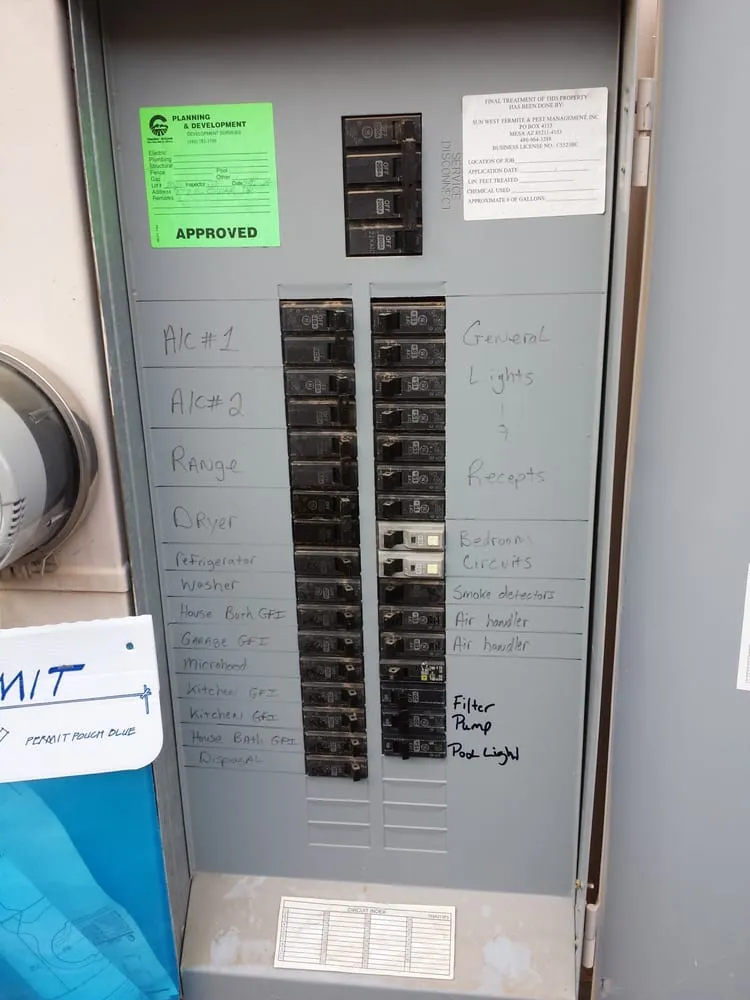 PLANNING
& DEVELOPMENT
DEVELOPMENT SERVICES
Electric
Plumbing
Structural
Fence
Pool
Gas
Other
Lot #
Inspector
Date
Address
Remarks
APPROVED
SERVICE
DISCONNECT
OFF
OFF
OFF
FINAL TREATMENT OF THIS PROPERTY
HAS BEEN DONE BY:
SUN WEST TERMITE & PEST MANAGEMENT, INC
PO BOX 4153
MESA AZ 85211-4153
BUSINESS LICENSE NO.
LOCATION OF JOB
APPLICATION DATE
LIN. FEET TREATED
CHEMICAL USED
APPROXIMATE # OF GALLONS
A/C #1
A/C #2
Range
Dryer
refrigerator
Washer
House Bath GFI
Garage GFI
Microhood
Kitchen GFI
Kitchen GFI
House Bath GFI
Disposal
General
Lights
&
Recepts
Bedroom
Circuits
Smoke detectors
Air handler
Air handler
Filter
Pump
Pool Light
MIT
PERMIT POUCH BLUE
CIRCUIT INDEX